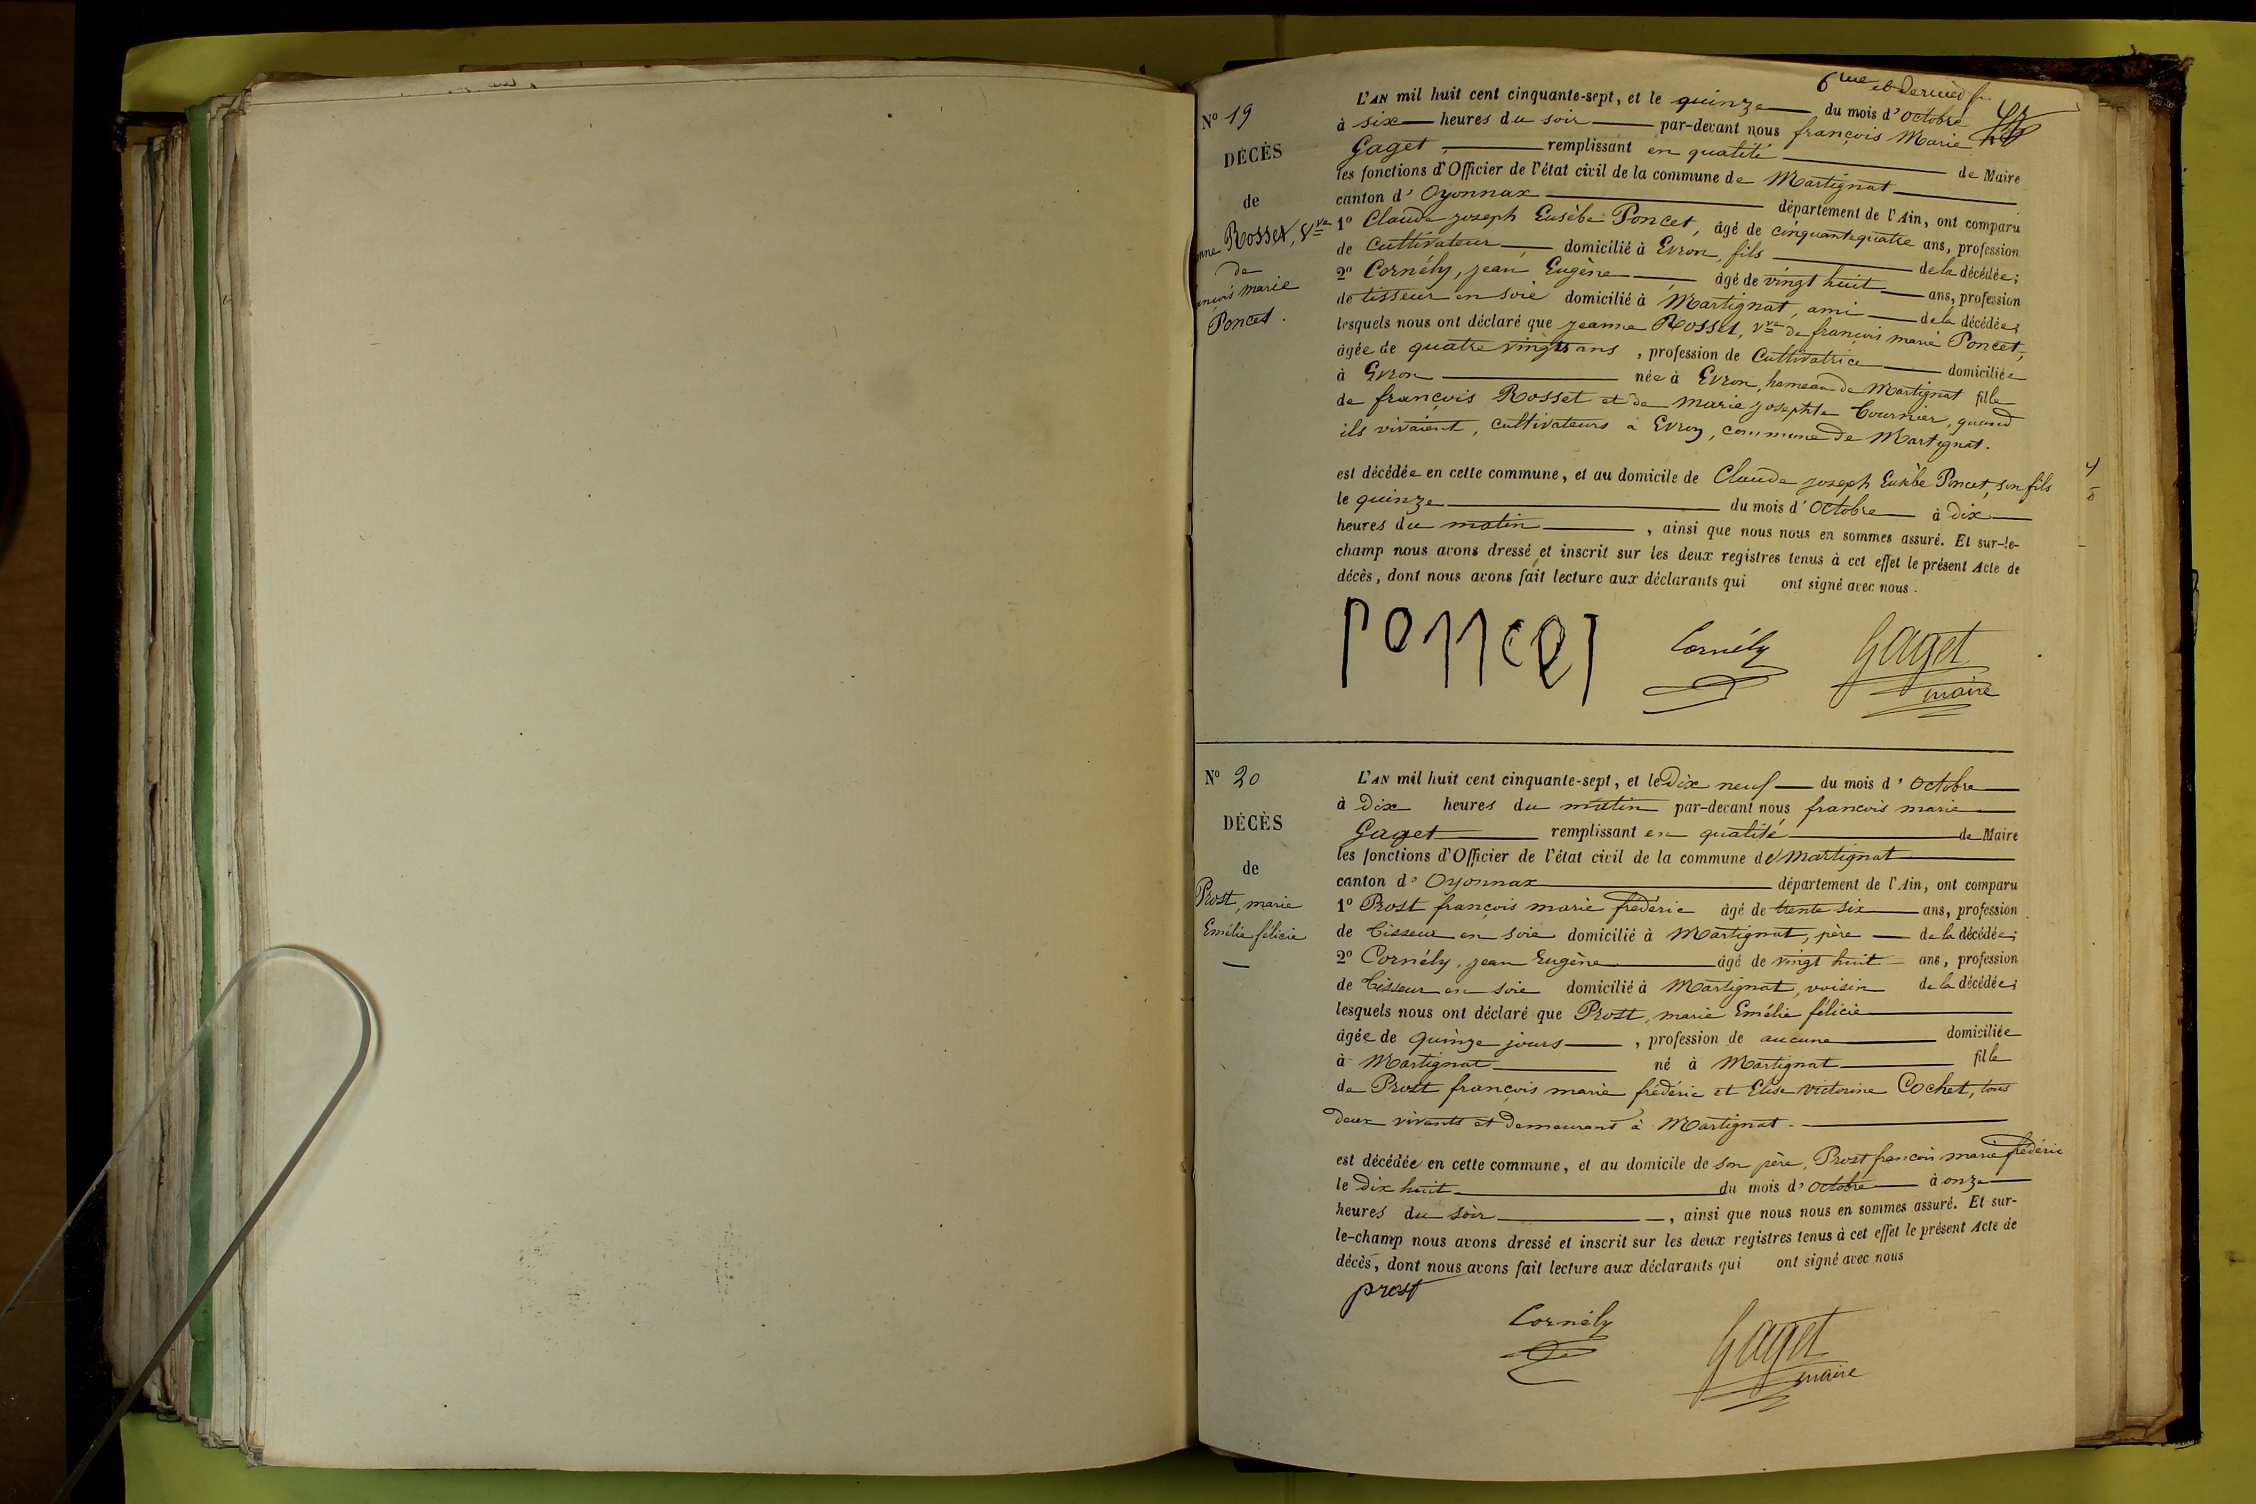 6me et dernier f
Nº 19
DÉCÈS
de
nne Rosset, Vve
de
ançois marie
Poncet.
L'AN mil huit cent cinquante-sept, et le quinze du mois d'Octobre
à six heures du soir par-devant nous françois Marie
Gaget, remplissant en qualité de Maire
les fonctions d'Officier de l'état civil de la commune de Martignat
canton d'Oyonnax département de l'Ain, ont comparu
1º Claude joseph Eusèbe Poncet, âgé de cinquantequatre ans, profession
de Cultivateur domicilié à Evron, fils de la décédée;
2º Cornély, jean Eugène, âgé de vingt huit ans, profession
de tisseur en soie domicilié à Martignat, ami de la décédée;
lesquels nous ont déclaré que jeanne Rosset, Vve de françois marie Poncet,
âgée de quatre vingts ans, profession de Cultivatrice domiciliée
à Evron née à Evron, hameau de Martignat fille
de françois Rosset et de Marie josephte Tournier, quand
ils vivaient, cultivateurs à Evron, commune de Martignat.
est décédée en cette commune, et au domicile de Claude joseph Eusèbe Poncet, son fils
le quinze du mois d'Octobre à dix
heures du matin, ainsi que nous nous en sommes assuré. Et sur-le-
champ nous avons dressé et inscrit sur les deux registres tenus à cet effet le présent Acte de
décès, dont nous avons fait lecture aux déclarants qui ont signé avec nous.
Poncet Cornély Gaget
maire
Nº 20
DÉCÈS
de
Prost, marie
Emélie félicie
L'AN mil huit cent cinquante-sept, et le Dix neuf du mois d'Octobre
à Dix heures du matin par-devant nous françois marie
Gaget remplissant en qualité de Maire
les fonctions d'Officier de l'état civil de la commune de Martignat
canton d'Oyonnax département de l'Ain, ont comparu
1º Prost françois marie frédéric âgé de trente six ans, profession
de Tisseur en soie domicilié à Martignat, père de la décédée;
2º Cornély, jean Eugène âgé de vingt huit ans, profession
de Tisseur en soie domicilié à Martignat, voisin de la décédée;
lesquels nous ont déclaré que Prost, marie Emélie félicie
âgée de quinze jours, profession de aucune domiciliée
à Martignat né à Martignat fille
de Prost françois marie frédéric et Elise Victorine Cochet, tous
deux vivants et demeurant à Martignat.
est décédée en cette commune, et au domicile de son père, Prost françois marie frédéric
le dix huit du mois d'Octobre à onze
heures du soir, ainsi que nous nous en sommes assuré. Et sur-
le-champ nous avons dressé et inscrit sur les deux registres tenus à cet effet le présent Acte de
décès, dont nous avons fait lecture aux déclarants qui ont signé avec nous
prost
Cornély Gaget
maire